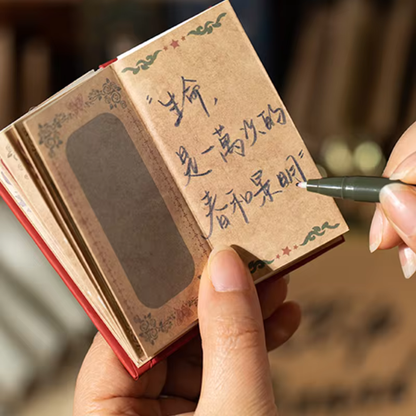 "生命,
是一萬次的
春和景明"